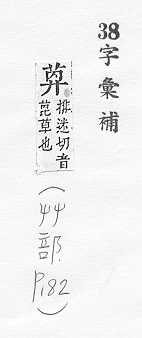 38
字彙補
排迷切音
草也
(艸部 P.182)